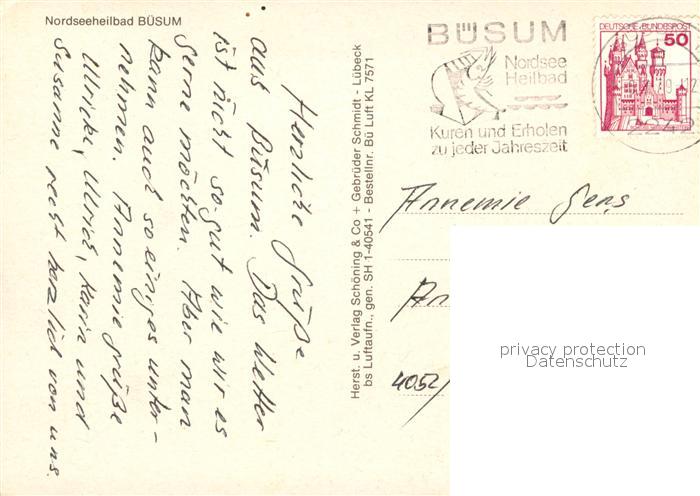 Nordseeheilbad BÜSUM
Herzliche Grüße
aus Büsum. Das Wetter
ist nicht so gut wie wir es
gerne möchten. Aber man
kann auch so einiges unter-
nehmen. Annemie grüße
Ulricke, Ulrich, Karin und
Susanne recht herzlich von uns.
Herst. u. Verlag Schöning & Co + Gebrüder Schmidt - Lübeck
bs Luftaufn., gen. SH 1-40541 - Bestellnr. Bü Luft KL 7571
BÜSUM
Nordsee
Heilbad
Kuren und Erholen
zu jeder Jahreszeit
DEUTSCHE BUNDESPOST
50
Annemie Gens
An
4052
privacy protection
Datenschutz